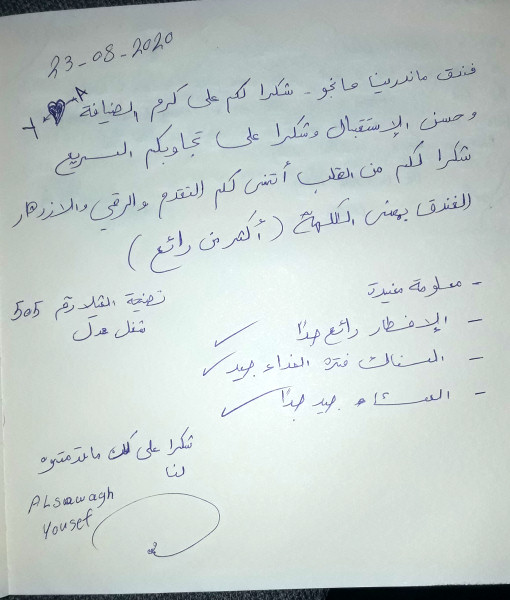 23-08-2020
فندق ماندرينا مانجو - شكرا لكم على كرم الضيافة
وحسن الإستقبال وشكرا على تجاوبكم السريع
شكرا لكم من القلب أتمنى لكم التقدم والرقي والازدهار
الفندق بمعنى الكلمة (أكثر من رائع)
- معلومة مفيدة
- الإفطار رائع جدًا ✓
- السناك فترة الغداء جيد ✓
- العشاء جيد جدًا ✓
رقم 505
شغل عدل
شكرا على كل ما قدمتوه
لنا
ALsawagh
Yousef